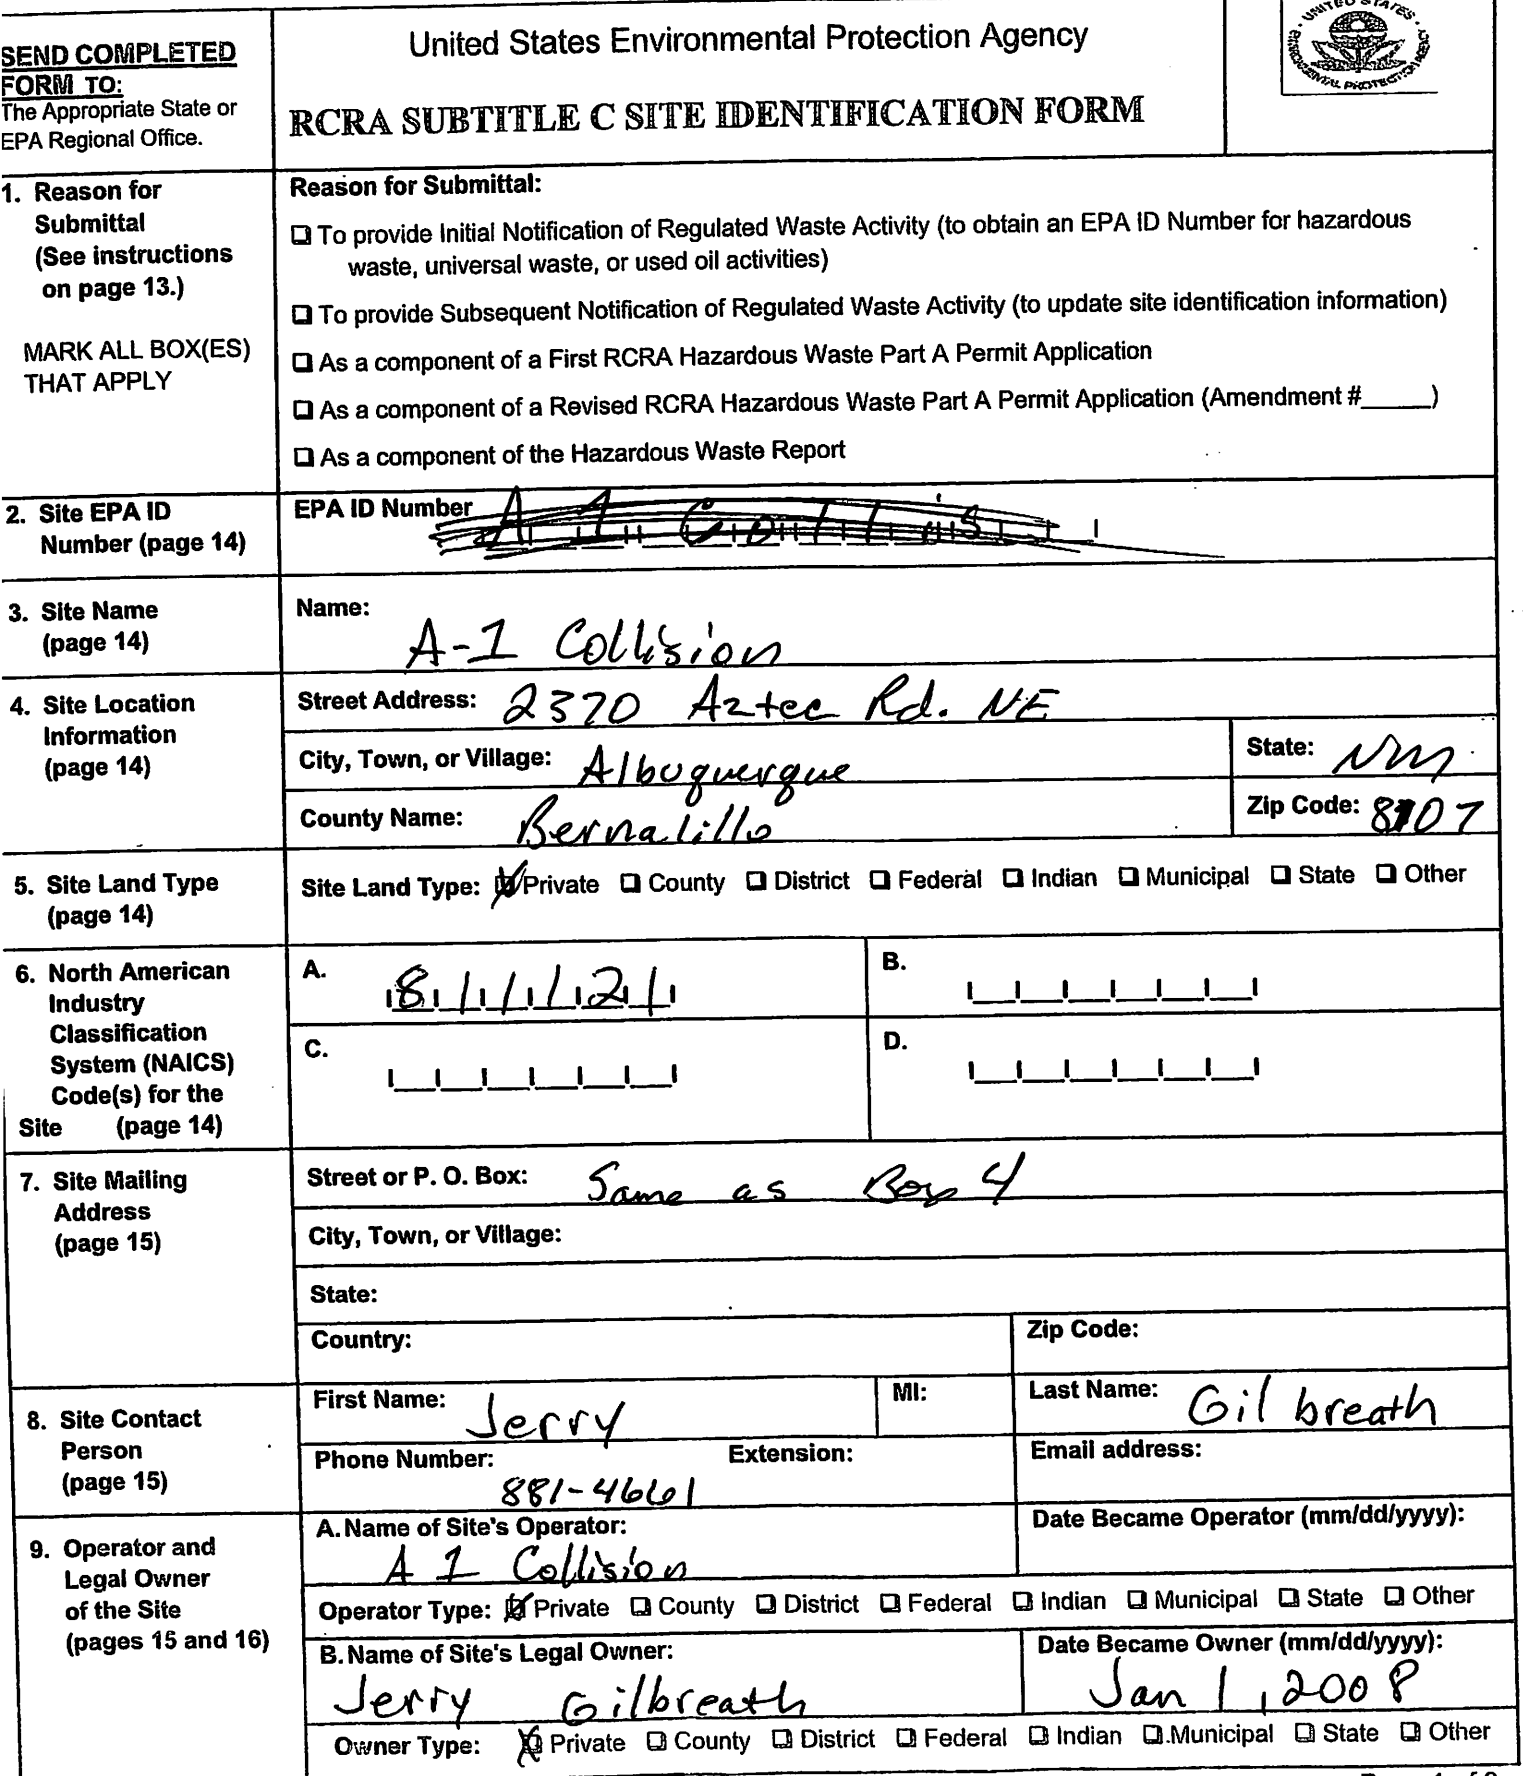 SEND COMPLETED
FORM TO:
The Appropriate State or
EPA Regional Office.
United States Environmental Protection Agency
RCRA SUBTITLE C SITE IDENTIFICATION FORM
UNITED STATES
ENVIRONMENTAL PROTECTION AGENCY
1. Reason for
Submittal
(See instructions
on page 13.)
MARK ALL BOX(ES)
THAT APPLY
Reason for Submittal:
❑ To provide Initial Notification of Regulated Waste Activity (to obtain an EPA ID Number for hazardous
waste, universal waste, or used oil activities)
❑ To provide Subsequent Notification of Regulated Waste Activity (to update site identification information)
❑ As a component of a First RCRA Hazardous Waste Part A Permit Application
❑ As a component of a Revised RCRA Hazardous Waste Part A Permit Application (Amendment #_____)
❑ As a component of the Hazardous Waste Report
2. Site EPA ID
Number (page 14)
EPA ID Number
3. Site Name
(page 14)
Name:
A-1 Collision
4. Site Location
Information
(page 14)
Street Address: 2370 Aztec Rd. NE
City, Town, or Village: Albuquerque
State: NM
County Name: Bernalillo
Zip Code: 8107
5. Site Land Type
(page 14)
Site Land Type: ☒ Private ❑ County ❑ District ❑ Federal ❑ Indian ❑ Municipal ❑ State ❑ Other
6. North American
Industry
Classification
System (NAICS)
Code(s) for the
Site (page 14)
A. 811121
B.
C.
D.
7. Site Mailing
Address
(page 15)
Street or P. O. Box: Same as Box 4
City, Town, or Village:
State:
Country:
Zip Code:
8. Site Contact
Person
(page 15)
First Name: Jerry
MI:
Last Name: Gilbreath
Phone Number: Extension:
881-4661
Email address:
9. Operator and
Legal Owner
of the Site
(pages 15 and 16)
A. Name of Site's Operator:
A 1 Collision
Date Became Operator (mm/dd/yyyy):
Operator Type: ☒ Private ❑ County ❑ District ❑ Federal ❑ Indian ❑ Municipal ❑ State ❑ Other
B. Name of Site's Legal Owner:
Jerry Gilbreath
Date Became Owner (mm/dd/yyyy):
Jan 1, 2008
Owner Type: ☒ Private ❑ County ❑ District ❑ Federal ❑ Indian ❑ Municipal ❑ State ❑ Other